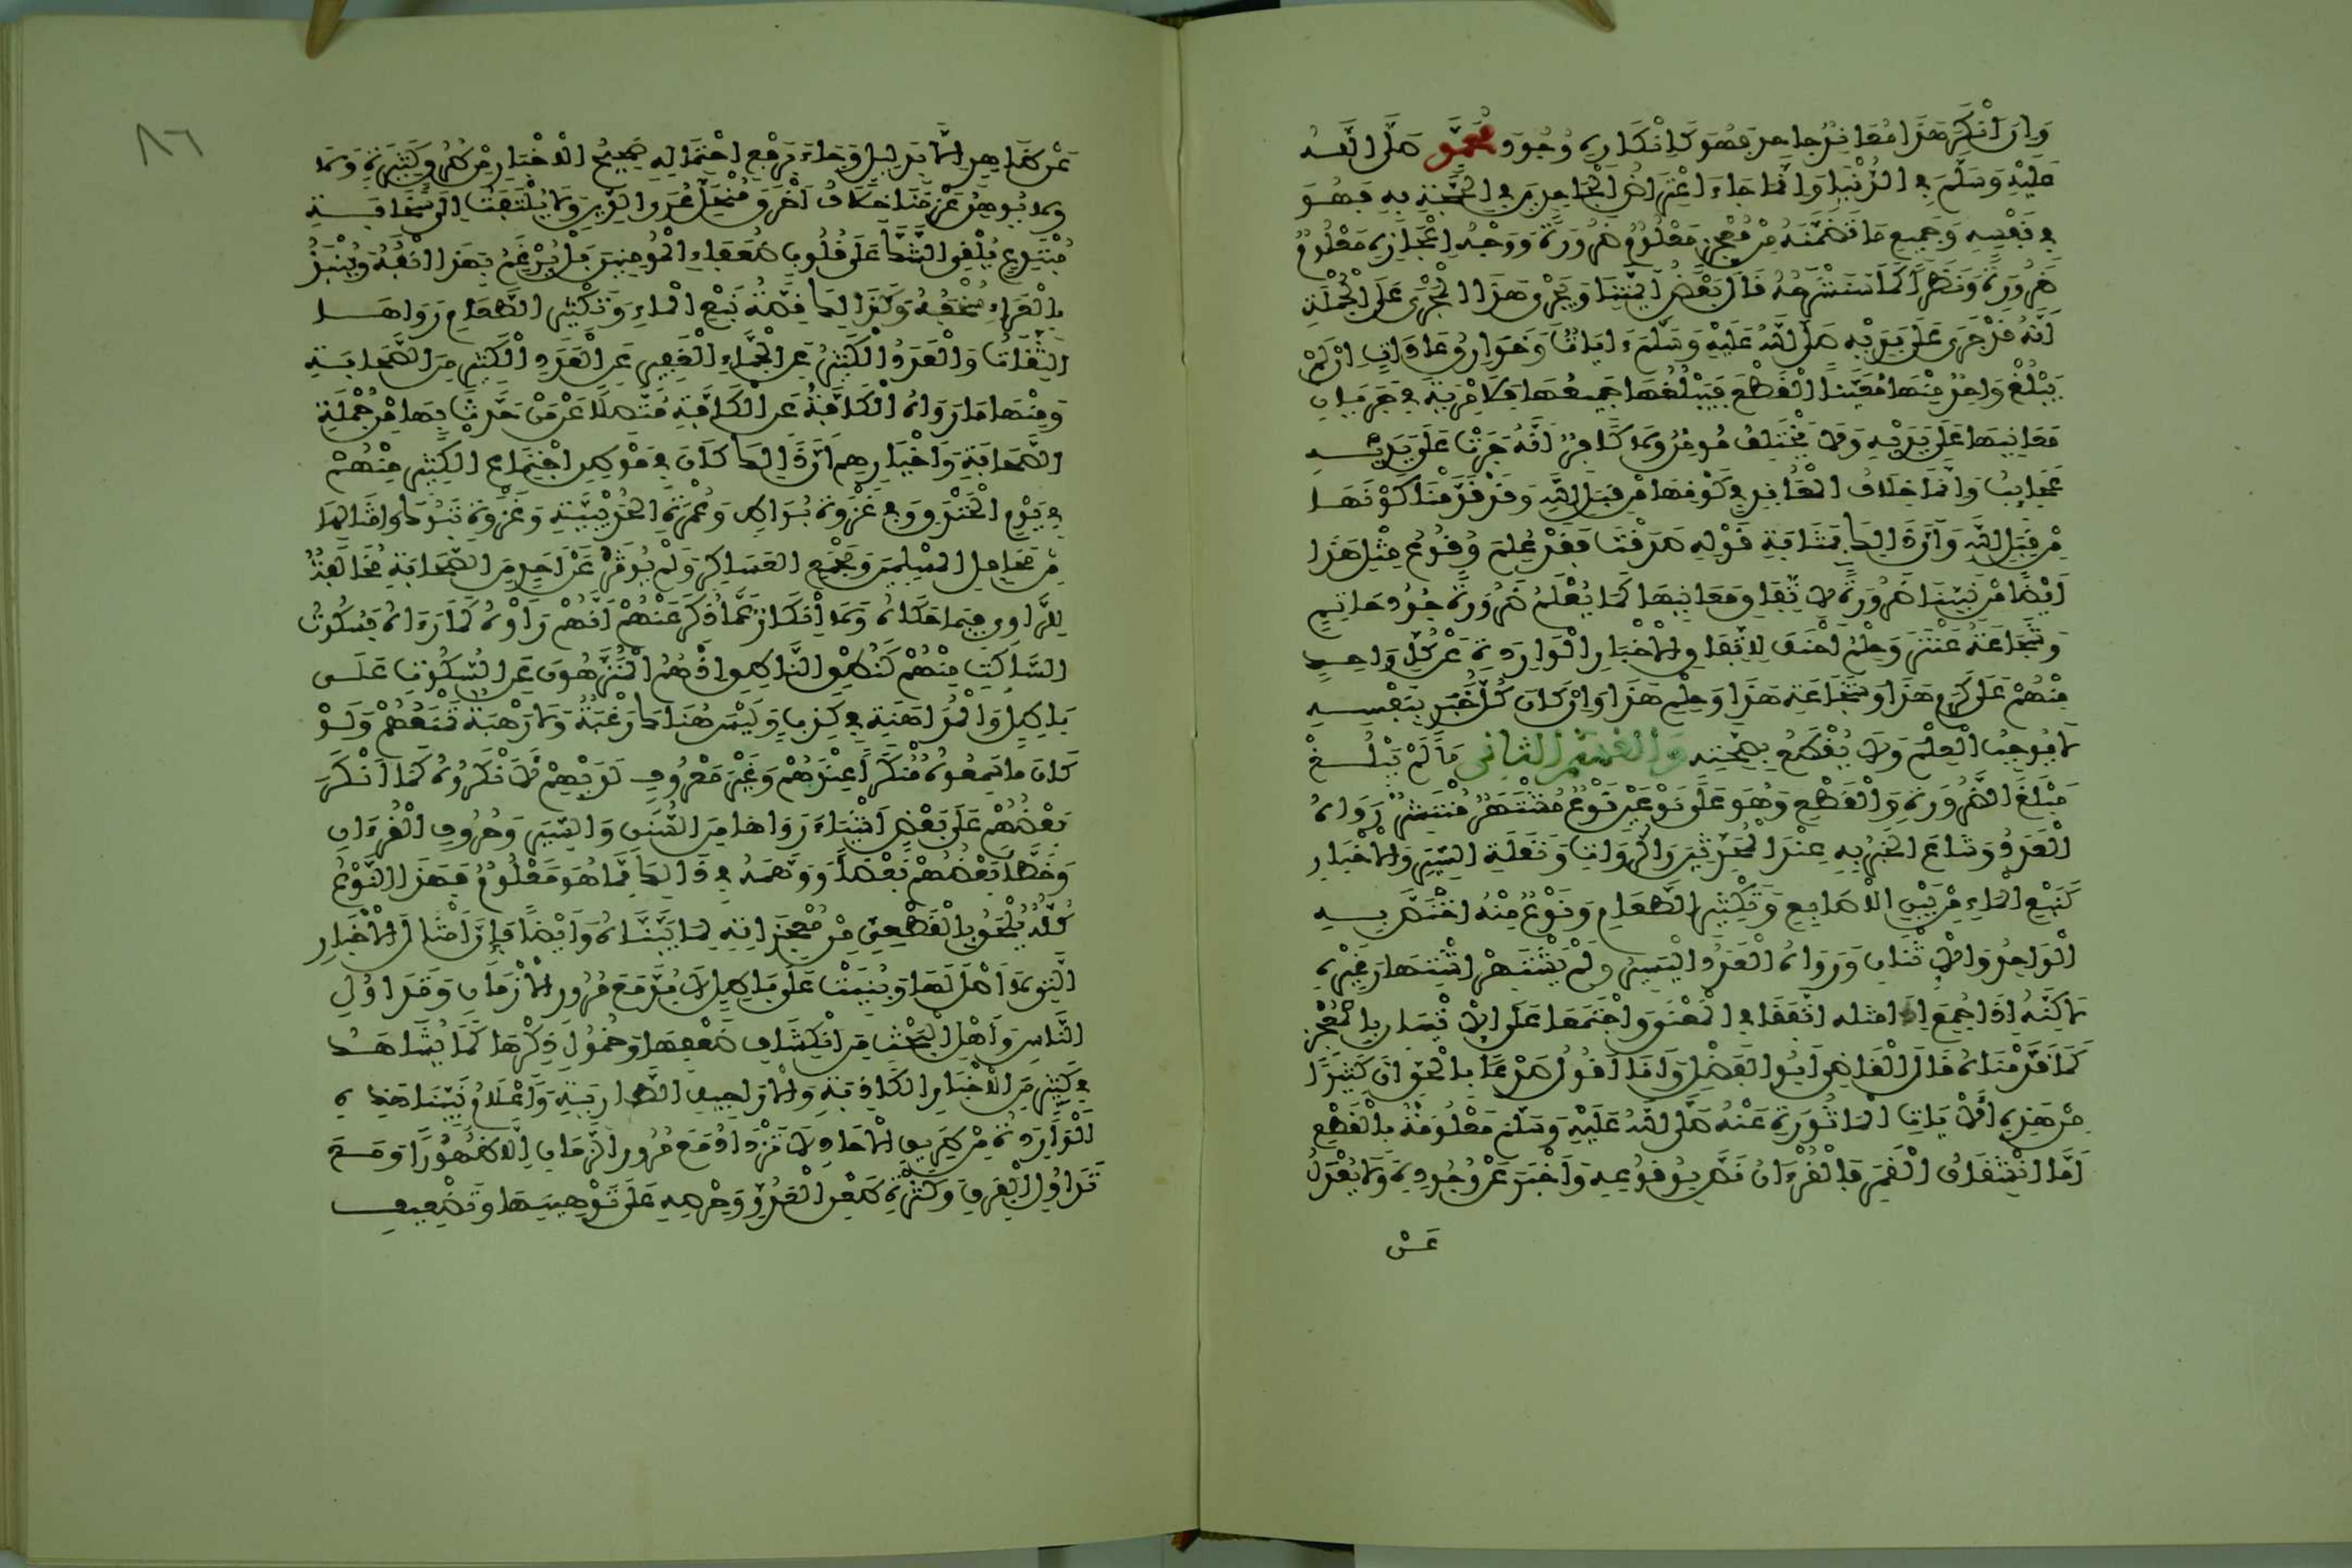 وَإِنْ أَنْكَرَ هَذَا مُعَانِدٌ جَاحِدٌ فَهُوَ كَإِنْكَارِهِ وُجُودَ مُحَمَّدٍ صَلَّى اللَّهُ
عَلَيْهِ وَسَلَّمَ فِي الدُّنْيَا وَإِنَّمَا جَاءَ اعْتِرَاضُ الْجَاحِدِينَ فِي الْحُجَّةِ بِهِ فَهُوَ
فِي نَفْسِهِ وَجَمِيعِ مَا تَضَمَّنَهُ مِنْ مُعْجِزٍ مَعْلُومٌ ضَرُورَةً وَوَجْهُ إِعْجَازِهِ مَعْلُومٌ
ضَرُورَةً وَنَظَرًا كَمَا سَنَشْرَحُهُ قَالَ بَعْضُ أَئِمَّتِنَا وَيَجْرِي هَذَا الْمَجْرَى عَلَى الْجُمْلَةِ
أَنَّهُ قَدْ جَرَى عَلَى يَدَيْهِ صَلَّى اللَّهُ عَلَيْهِ وَسَلَّمَ ءَايَاتٌ وَخَوَارِقُ عَادَاتٍ إِنْ لَمْ
يَبْلُغْ وَاحِدٌ مِنْهَا مُعَيَّنًا الْقَطْعَ فَيَبْلُغُهَا جَمِيعُهَا فَلَا مِرْيَةَ فِي جَرَيَانِ
مَعَانِيهَا عَلَى يَدَيْهِ وَلَا يَخْتَلِفُ مُومِنٌ وَلَا كَافِرٌ أَنَّهُ جَرَتْ عَلَى يَدَيْهِ
عَجَائِبُ وَإِنَّمَا خِلَافُ الْمُعَانِدِ فِي كَوْنِهَا مِنْ قِبَلِ اللَّهِ وَقَدْ قَدَّمْنَا كَوْنَهَا
مِنْ قِبَلِ اللَّهِ وَأَنَّ ذَلِكَ بِمَثَابَةِ قَوْلِهِ صَدَقْتَ فَقَدْ عُلِمَ وُقُوعُ مِثْلِ هَذَا
أَيْضًا مِنْ نَبِيِّنَا ضَرُورَةً لِاتِّفَاقِ مَعَانِيهَا كَمَا يُعْلَمُ ضَرُورَةً جُودُ حَاتِمٍ
وَشَجَاعَةُ عَنْتَرَ وَحِلْمُ أَحْنَفَ لِاتِّفَاقِ الْأَخْبَارِ الْوَارِدَةِ عَنْ كُلِّ وَاحِدٍ
مِنْهُمْ عَلَى كَرَمِ هَذَا وَشَجَاعَةِ هَذَا وَحِلْمِ هَذَا وَإِنْ كَانَ كُلُّ خَبَرٍ بِنَفْسِهِ
لَا يُوجِبُ الْعِلْمَ وَلَا يُقْطَعُ بِصِحَّتِهِ وَالْقِسْمُ الثَّانِي مَا لَمْ يَبْلُغْ
مَبْلَغَ الضَّرُورَةِ وَالْقَطْعِ وَهُوَ عَلَى نَوْعَيْنِ نَوْعٌ مُشْتَهِرٌ مُنْتَشِرٌ رَوَاهُ
الْعَدَدُ وَشَاعَ الْخَبَرُ بِهِ عِنْدَ الْمُحَدِّثِينَ وَالرُّوَاةِ وَنَقَلَةِ السِّيَرِ وَالْأَخْبَارِ
كَنَبْعِ الْمَاءِ مِنْ بَيْنِ الْأَصَابِعِ وَتَكْثِيرِ الطَّعَامِ وَنَوْعٌ مِنْهُ اخْتَصَّ بِهِ
الْوَاحِدُ وَالْاثْنَانِ وَرَوَاهُ الْعَدَدُ الْيَسِيرُ وَلَمْ يَشْتَهِرْ اشْتِهَارَ غَيْرِهِ
لَاكِنَّهُ إِذَا جُمِعَ إِلَى مثله اتَّفَقَا فِي الْمَعْنَى وَاجْتَمَعَا عَلَى الْإِتْيَانِ بِالْمُعْجِزِ
كَمَا قَدَّمْنَاهُ قَالَ الْقَاضِي أَبُو الْفَضْلِ وَأَنَا أَقُولُ صَدْعًا بِالْحَقِّ أَنَّ كَثِيرًا
مِنْ هَذِهِ الْآيَاتِ الْمَاثُورَةِ عَنْهُ صَلَّى اللَّهُ عَلَيْهِ وَسَلَّمَ مَعْلُومَةٌ بِالْقَطْعِ
أَمَّا انْشِقَاقُ الْقَمَرِ فَالْقُرْءَانُ نَصَّ بِوُقُوعِهِ وَأَخْبَرَ عَنْ وُجُودِهِ وَلَا يُعْدَلُ
عَنْ
٨٦
عَنْ ظَاهِرٍ إِلَّا بِدَلِيلٍ وَجَاءَ بِرَفْعِ احْتِمَالِهِ صَحِيحُ الْأَخْبَارِ مِنْ طُرُقٍ كَثِيرَةٍ وَلَا
وَلَا يُوهِنُ عَزْمَنَا خِلَافُ أَخْرَقَ مُنْحَلِّ عُرَى الدِّينِ وَلَا يُلْتَفَتُ إِلَى سَخَافَةِ
مُبْتَدِعٍ يُلْقِي الشَّكَّ عَلَى قُلُوبِ ضُعَفَاءِ الْمُومِنِينَ بَلْ يُرْغَمُ بِهَذَا أَنْفُهُ وَيُنْبَذُ
بِالْعَرَاءِ سُخْفُهُ وَكَذَلِكَ قِصَّةُ نَبْعِ الْمَاءِ وَتَكْثِيرِ الطَّعَامِ رَوَاهَا
الثِّقَاتُ وَالْعَدَدُ الْكَثِيرُ عَنِ الْجَمَّاءِ الْغَفِيرِ عَنِ الْعَدَدِ الْكَثِيرِ مِنَ الصَّحَابَةِ
وَمِنْهَا مَا رَوَاهُ الْكَافَّةُ عَنِ الْكَافَّةِ مُتَّصِلًا عَنْ مَنْ حَدَّثَ بِهَا مِنْ جُمْلَةِ
الصَّحَابَةِ وَأَخْبَارِهِمْ أَنَّ ذَلِكَ كَانَ فِي مَوْطِنِ اجْتِمَاعِ الْكَثِيرِ مِنْهُمْ
فِي يَوْمِ الْخَنْدَقِ وَفِي غَزْوَةِ بُوَاطٍ وَعُمْرَةِ الْحُدَيْبِيَةِ وَغَزْوَةِ تَبُوكَ وَأَمْثَالِهَا
مِنْ مَحَافِلِ الْمُسْلِمِينَ وَمَجْمَعِ الْعَسَاكِرِ وَلَمْ يُوثَرْ عَنْ أَحَدٍ مِنَ الصَّحَابَةِ مُخَالَفَةٌ
لِلرَّاوِي فِيمَا حَكَاهُ وَلَا إِنْكَارٌ عَمَّا ذُكِرَ عَنْهُمْ أَنَّهُمْ رَأَوْهُ كَمَا رَءَاهُ فَسُكُوتُ
السَّاكِتِ مِنْهُمْ كَنُطْقِ النَّاطِقِ إِذْ هُمُ الْمُنَزَّهُونَ عَنِ السُّكُوتِ عَلَى
بَاطِلٍ وَالْمُدَاهَنَةِ فِي كَذِبٍ وَلَيْسَ هُنَاكَ رَغْبَةٌ وَلَا رَهْبَةٌ تَمْنَعُهُمْ وَلَوْ
كَانَ مَا سَمِعُوهُ مُنْكَرًا عِنْدَهُمْ وَغَيْرَ مَعْرُوفٍ لَدَيْهِمْ لَأَنْكَرُوهُ كَمَا أَنْكَرَ
بَعْضُهُمْ عَلَى بَعْضٍ أَشْيَاءَ رَوَاهَا مِنَ السُّنَنِ وَالسِّيَرِ وَحُرُوفِ الْقُرْءَانِ
وَخَطَّأَ بَعْضُهُمْ بَعْضًا وَوَهَّمَهُ فِي ذَلِكَ مِمَّا هُوَ مَعْلُومٌ فَهَذَا النَّوْعُ
كُلُّهُ يُلْحَقُ بِالْقَطْعِيِّ مِنْ مُعْجِزَاتِهِ لِمَا بَيَّنَّاهُ وَأَيْضًا فَإِنَّ أَمْثَالَ الْأَخْبَارِ
الَّتِي لَا أَصْلَ لَهَا وَبُنِيَتْ عَلَى بَاطِلٍ لَابُدَّ مَعَ مُرُورِ الْأَزْمَانِ وَتَدَاوُلِ
النَّاسِ وَأَهْلِ الْبَحْثِ مِنِ انْكِشَافِ ضَعْفِهَا وَخُمُولِ ذِكْرِهَا كَمَا يُشَاهَدُ
فِي كَثِيرٍ مِنَ الْأَخْبَارِ الْكَاذِبَةِ وَالْأَرَاجِيفِ الطَّارِيَةِ وَأَعْلَامُ نَبِيِّنَا هَذِهِ
الْوَارِدَةُ مِنْ طَرِيقِ الْآحَادِ لَا تَزْدَادُ مَعَ مُرُورِ الزَّمَانِ إِلَّا ظُهُورًا وَمَعَ
تَدَاوُلِ الْفِرَقِ وَكَثْرَةِ طَعْنِ الْعَدُوِّ وَحِرْصِهِ عَلَى تَوْهِينِهَا وَتَضْعِيفِ